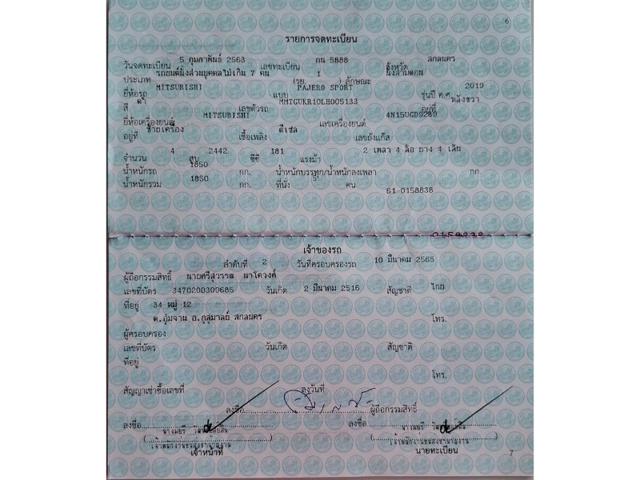 6
รายการจดทะเบียน
วันจดทะเบียน 5 กุมภาพันธ์ 2563 เลขทะเบียน กน 5888 จังหวัด สกลนคร
ประเภท รถยนต์นั่งส่วนบุคคลไม่เกิน 7 คน (รย. 1 ) ลักษณะ นั่งสามตอน
ยี่ห้อรถ MITSUBISHI แบบ PAJERO SPORT รุ่นปี ค.ศ. 2019
สี ดำ เลขตัวรถ MMTGUKR10LH005133 อยู่ที่ หลังขวา
ยี่ห้อเครื่องยนต์ MITSUBISHI เลขเครื่องยนต์ 4N15UGD9289
อยู่ที่ ซ้ายเครื่อง เชื้อเพลิง ดีเซล เลขถังแก๊ส
จำนวน 4 สูบ 2442 ซีซี 181 แรงม้า 2 เพลา 4 ล้อ ยาง 4 เส้น
น้ำหนักรถ 1850 กก. น้ำหนักบรรทุก/น้ำหนักลงเพลา กก
น้ำหนักรวม 1850 กก. ที่นั่ง 5 คน
61-0158838
เจ้าของรถ
ลำดับที่ 2 วันที่ครอบครองรถ 10 มีนาคม 2565
ผู้ถือกรรมสิทธิ์ นายศรีสุวรรณ
เลขที่บัตร 3470200309685 วันเกิด 2 มีนาคม 2516 สัญชาติ ไทย
ที่อยู่ 34 หมู่ 12
ต.อุ่มจาน อ.กุสุมาลย์ สกลนคร โทร.
ผู้ครอบครอง
เลขที่บัตร วันเกิด สัญชาติ
ที่อยู่
โทร.
สัญญาเช่าซื้อเลขที่ ลงวันที่
ลงชื่อ ผู้ถือกรรมสิทธิ์
ลงชื่อ ลงชื่อ
เจ้าหน้าที่ นายทะเบียน
7